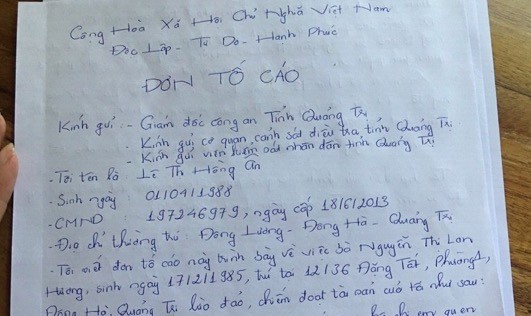 Cộng Hoà Xã Hội Chủ Nghĩa Việt Nam
Độc Lập - Tự Do - Hạnh Phúc
ĐƠN TỐ CÁO
Kính gửi: - Giám đốc công an Tỉnh Quảng Trị
- Kính gửi cơ quan cảnh sát điều tra tỉnh Quảng Trị
- Kính gửi viện kiểm sát nhân dân tỉnh Quảng Trị
- Tôi tên là Lê Th Hồng Ân
- Sinh ngày: 01/04/1988
- CMND: 197246979, ngày cấp 18/6/2013
- Địa chỉ thường trú: Đông Lương - Đông Hà - Quảng Trị
- Tôi viết đơn tố cáo này trình bày về việc bà Nguyễn Thị Lan
Hương, sinh ngày 17/2/1985, trú tại 12/36 Đặng Tất, Phường 1,
Đông Hà, Quảng Trị lừa đảo, chiếm đoạt tài sản của tôi như sau:
chị em quen